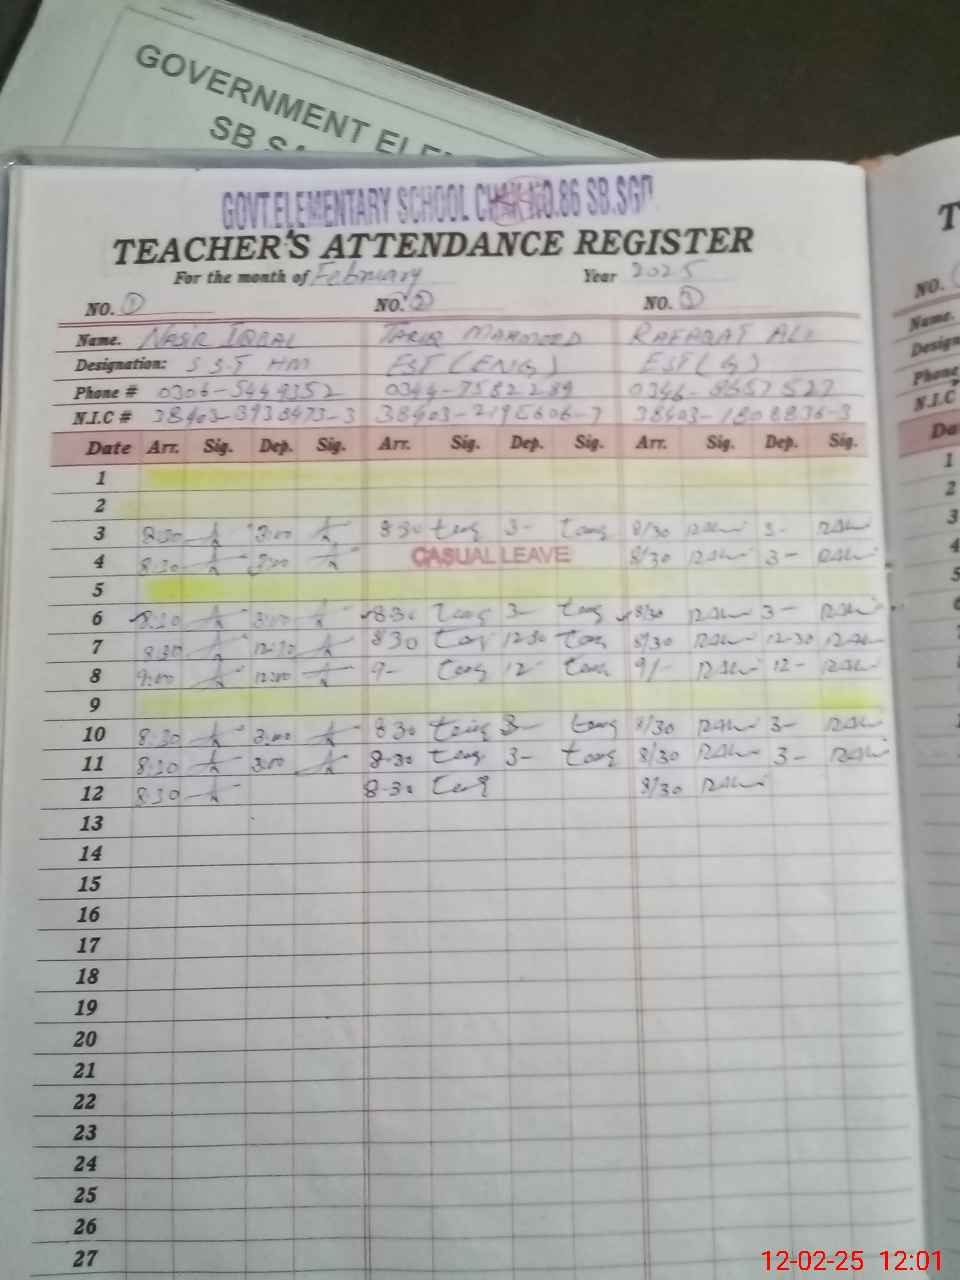 GOVERNMENT ELE
SB SA
GOVT.ELEMENTARY SCHOOL CHAK NO.86 SB.SGD
TEACHER'S ATTENDANCE REGISTER
For the month of February Year 2025
NO. 1 NO. 2 NO. 3
Name. NASIR IQBAL TARIQ MAHMOOD RAFAQAT ALI
Designation: S S T HM EST (ENG) EST (G)
Phone # 0306-5449352 0344-7582289 0346-8657527
N.I.C # 38403-3938473-3 38403-2195606-7 38403-1808836-3
Date Arr. Sig. Dep. Sig. Arr. Sig. Dep. Sig. Arr. Sig. Dep. Sig.
1
2
3 8:30 3:00 8 30 3- 8/30 3-
4 8:30 3:00 CASUAL LEAVE 8/30 3-
5
6 8:30 3:00 8-30 3- 8/30 3-
7 8:30 12:30 8/30 12-30 8/30 12-30
8 9:00 12:00 9- 12- 9/- 12-
9
10 8:30 3:00 8 30 3- 8/30 3-
11 8:30 3:00 8-30 3- 8/30 3-
12 8:30 8-30 8/30
13
14
15
16
17
18
19
20
21
22
23
24
25
26
27
T
NO.
Name.
Design
Phone
N.I.C
Da
1
2
3
4
5
12-02-25 12:01